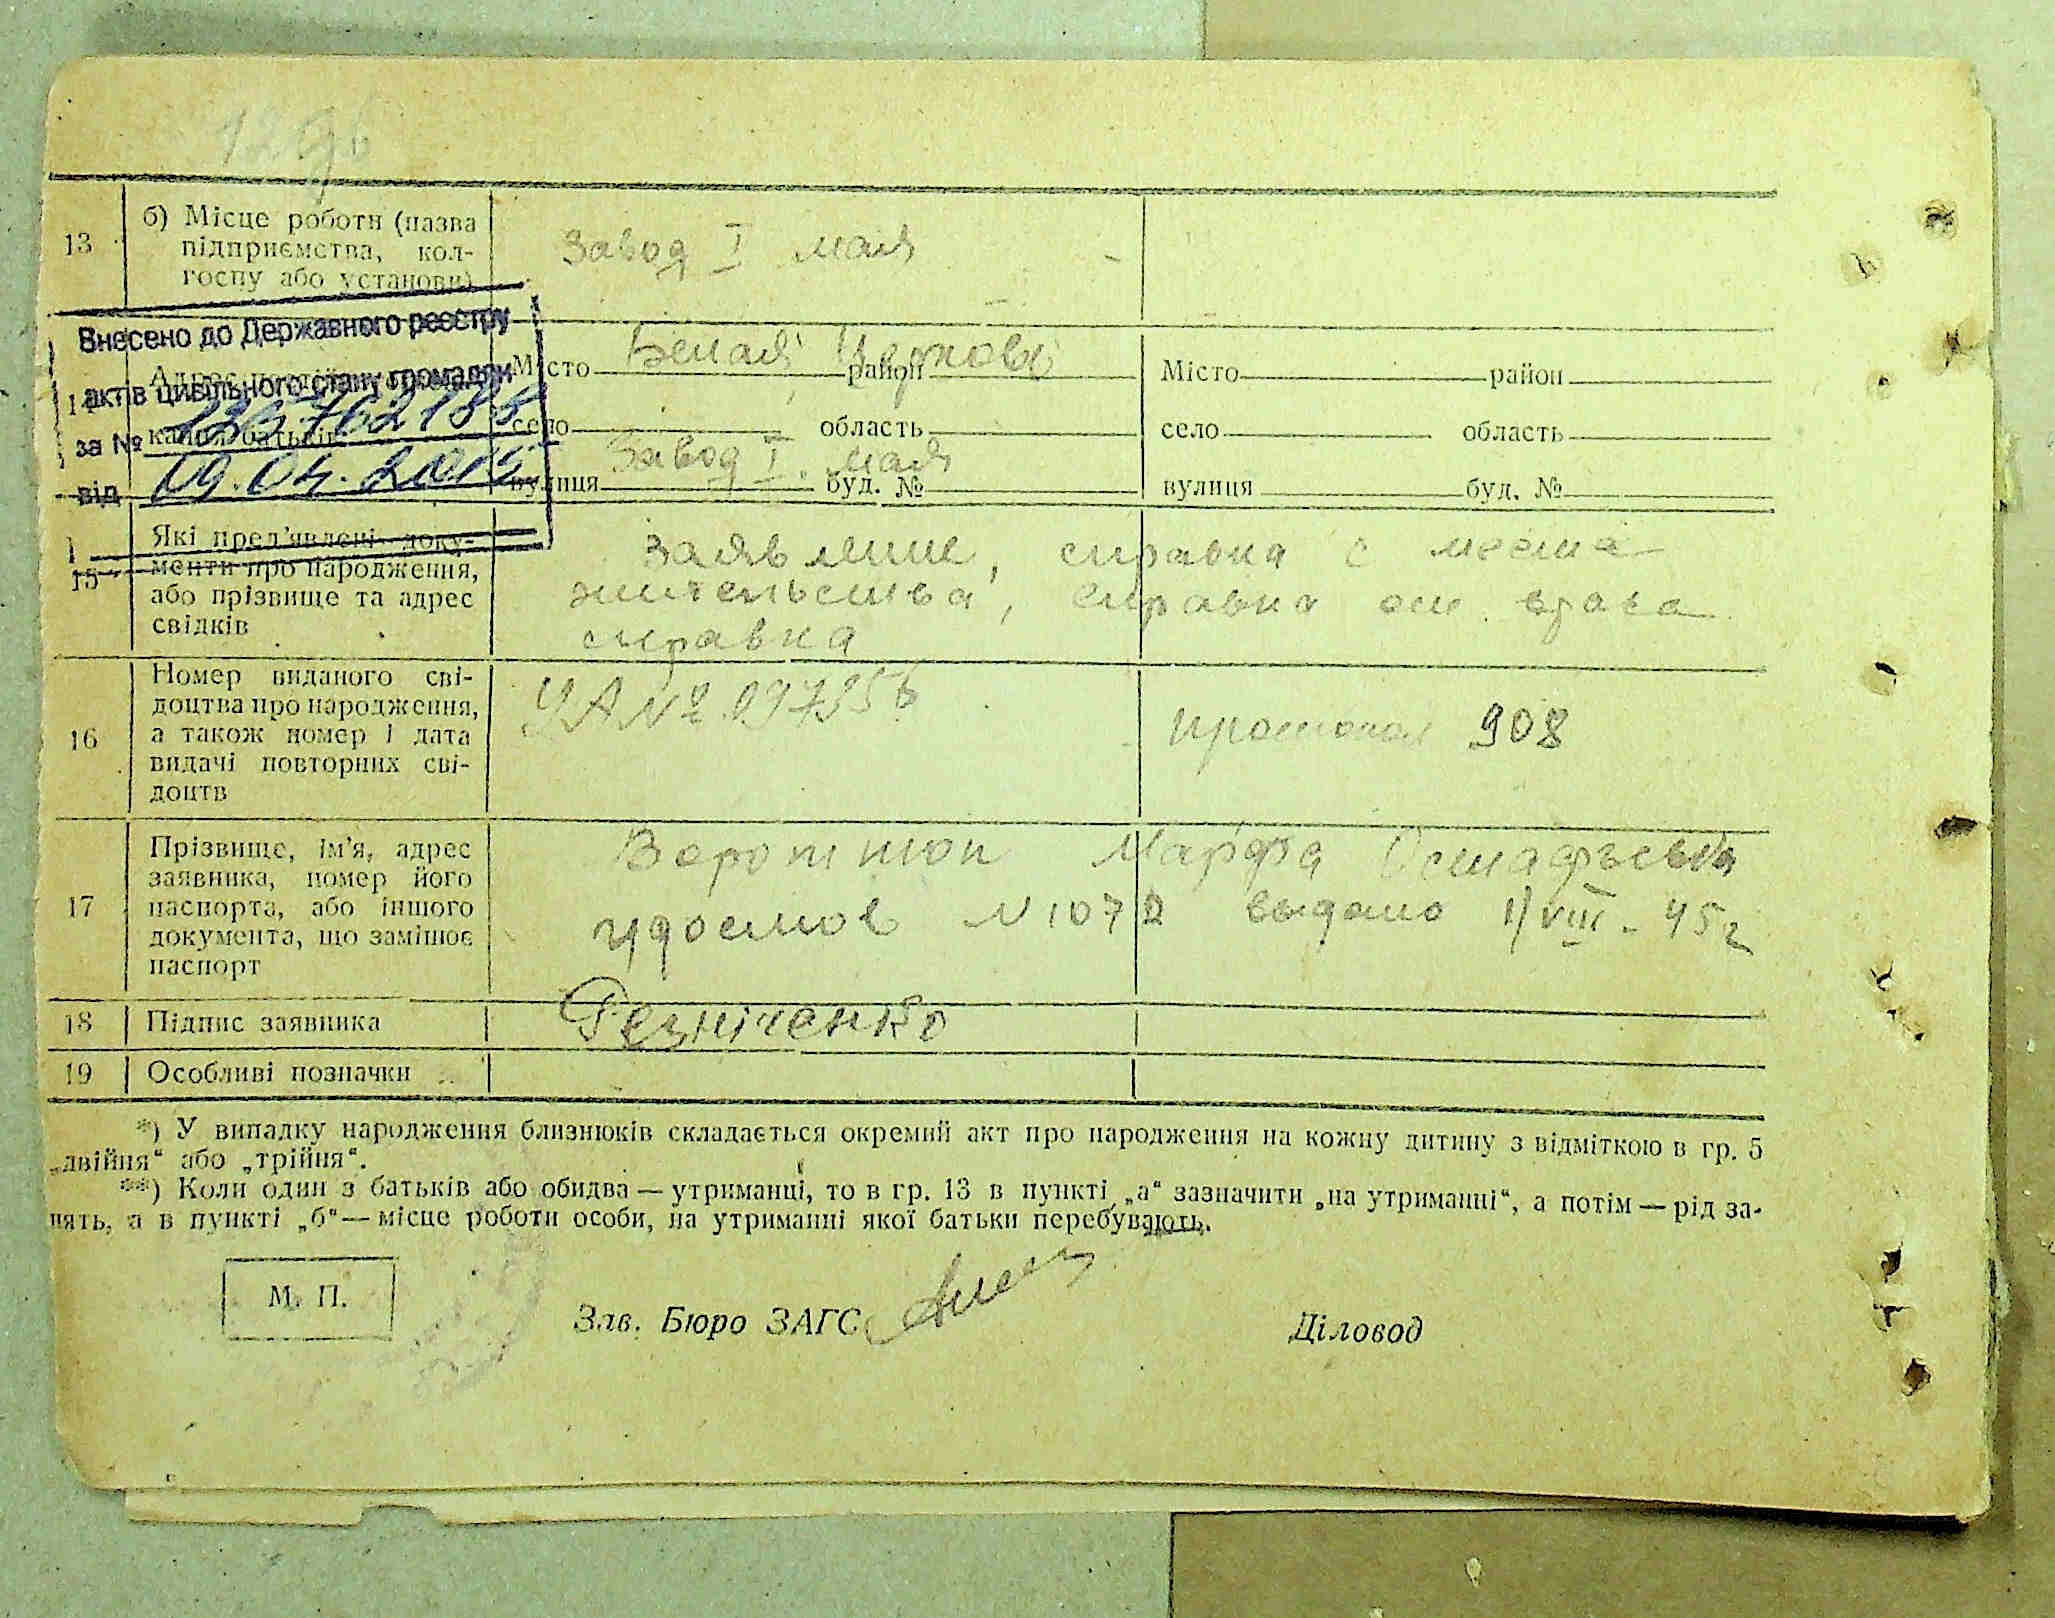 13
б) Місце роботи (назва
підприємства, кол-
госпу або установи)
Завод I мая
Внесено до Державного реєстру
актів цивільного стану громадян
за №
від 09.04.2015
Місто Белая Церковь район
село область
вулиця Завод I. мая буд. №
Місто район
село область
вулиця буд. №
15
Які пред'явлені доку-
менти про народження,
або прізвище та адрес
свідків
справка с места
жительства, справка от врача
справка
16
Номер виданого сві-
доцтва про народження,
а також номер і дата
видачі повторних сві-
доцтв
протокол 908
17
Прізвище, ім'я, адрес
заявника, номер його
паспорта, або іншого
документа, що замінює
паспорт
Марфа
удостов N 1072 выдано 1/VIII - 45 г
18 Підпис заявника
Резніченко
19 Особливі позначки
*) У випадку народження близнюків складається окремий акт про народження на кожну дитину з відміткою в гр. 5
„двійня“ або „трійня“.
**) Коли один з батьків або обидва — утриманці, то в гр. 13 в пункті „а“ зазначити „на утриманні“, а потім — рід за-
нять, а в пункті „б“ — місце роботи особи, на утриманні якої батьки перебувають.
М. П.
Зав. Бюро ЗАГС
Діловод